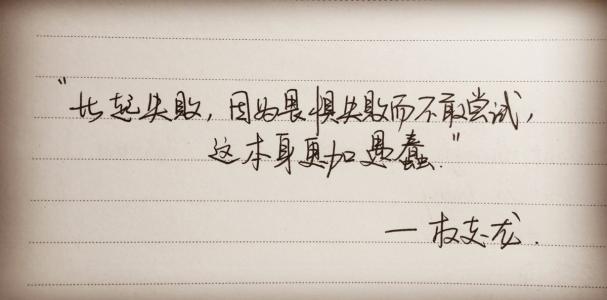 “比起失败，因为畏惧失败而不敢尝试，
这本身更加愚蠢.”
— 权志龙.